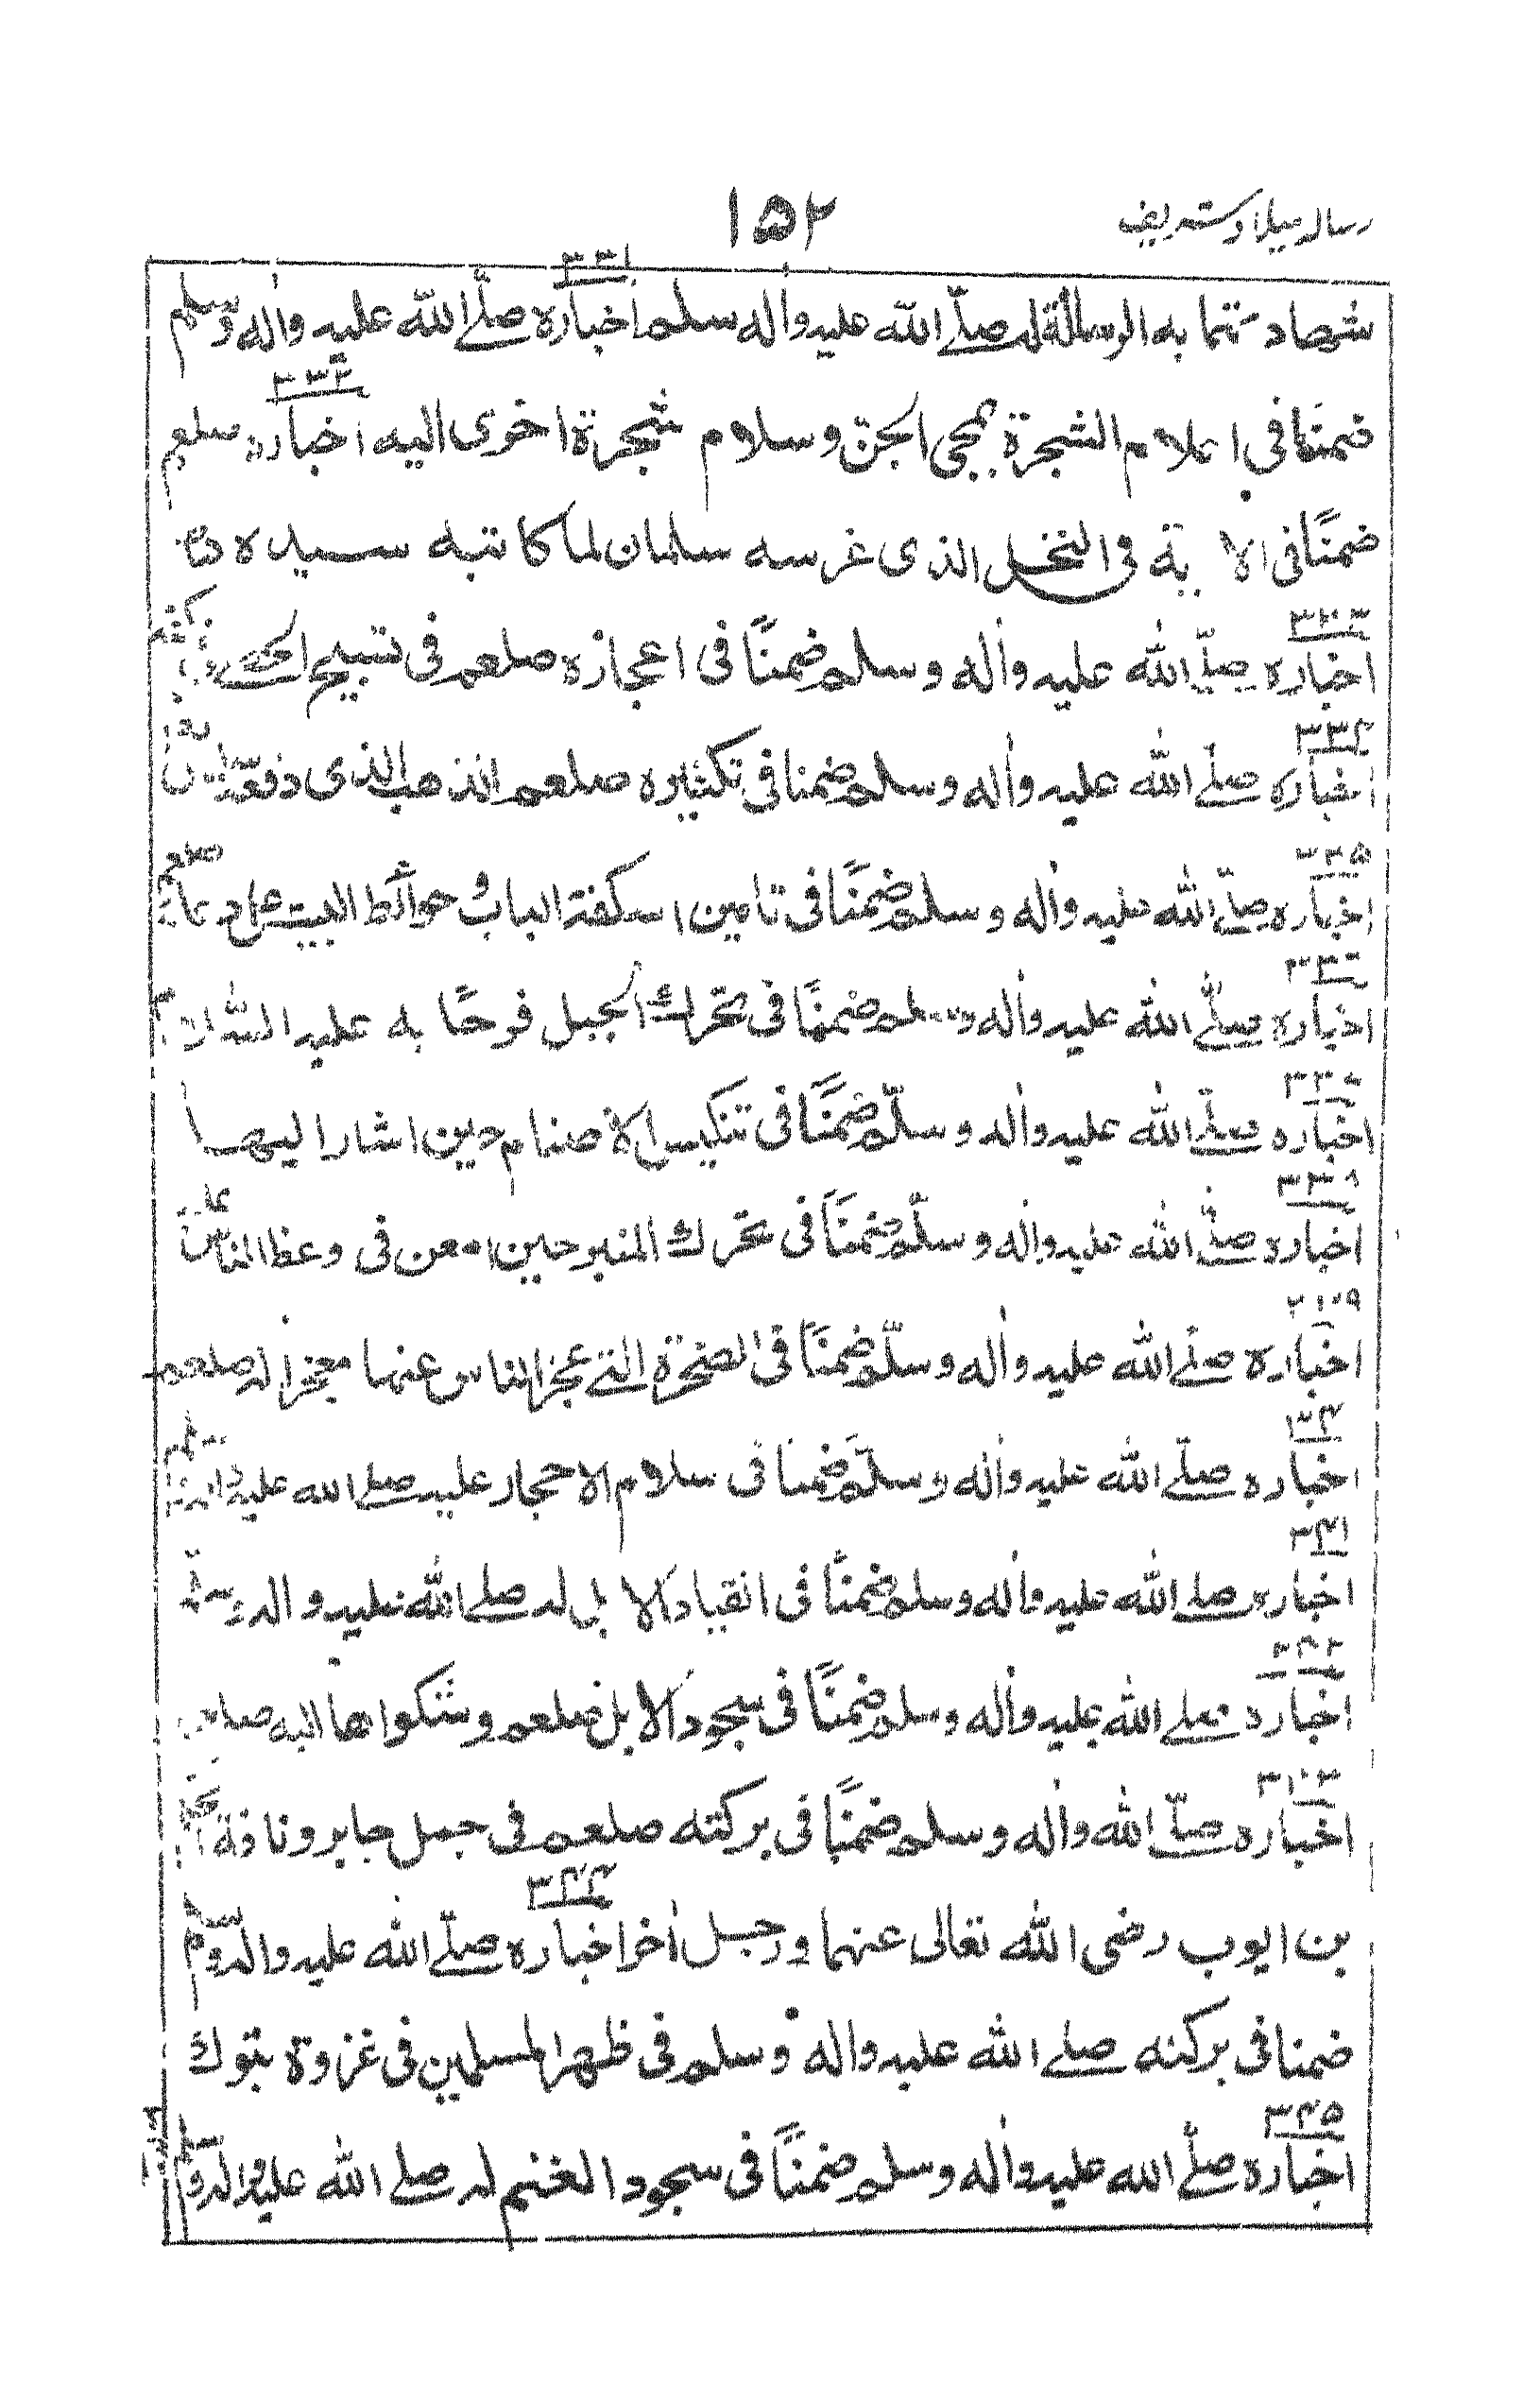 رساله میلاد شریف
۱۵۲
شهادتها به الرسالة له صلّے اللّه علیه واٰله سلم اخباره صلّے اللّه علیه واٰله وسلم
۳۳۱
ضمنًا فی اعلام الشجرة بمجی الجن وسلام شجرة اخری الیه اخباره صلعم
۳۳۲
ضمنًا فی الایة فی النخل الذی غرسه سلمان لما کاتبه سیده
۳۳۳
اخباره صلّے اللّه علیه واٰله وسلم ضمنًا فی اعجازه صلعم فی تسبیح الحصے
۳۳۴
اخباره صلّے اللّه علیه واٰله وسلم ضمنا فی تکثیره صلعم الذهب الذی دفعه
۳۳۵
اخباره صلّے اللّه علیه واٰله وسلم ضمنًا فی تامین اسکفة الباب و حوائط البیت علی دعائه صلعم
اخباره صلّے اللّه علیه واٰله وسلم ضمنًا فی تحرك الجبل فرحًا به علیه السلام
اخباره صلّے اللّه علیه واٰله وسلّم ضمنًا فی تنکیس الاصنام حین اشار الیها
۳۳۸
اخباره صلّے اللّه علیه واٰله وسلّم ضمنًا فی تحرك المنبر حین امعن فی وعظ الناس علیه
اخباره صلّے اللّه علیه واٰله وسلّم ضمنًا فی الصخرة التے عجز الناس عنها معجزا له صلعم
اخباره صلّے اللّه علیه واٰله وسلّم ضمنا فی سلام الاحجار علیه صلے الله علیه
۳۴۱
اخباره صلے اللّه علیه واٰله وسلم ضمنًا فی انقیاد الابل له صلے اللّه علیه و اله وسلم
۳۴۲
اخباره صلے اللّه علیه واٰله وسلم ضمنًا فی سجود الابل صلعم وشکواها الیه صلعم
اخباره صلّے اللّه واٰله وسلم ضمنًا فی برکته صلعم فی جمل جابر وناقة
بن ایوب رضی اللّه تعالی عنهما ورجل اٰخر اخباره صلّے اللّه علیه واله وسلم
۳۴۴
ضمنا فی برکته صلے اللّه علیه واله وسلم فی ظهر المسلمین فی غزوة تبوك
۳۴۵
اخباره صلّے اللّه علیه واٰله وسلم ضمنًا فی سجود الغنم له صلے اللّه علیه واله وسلم